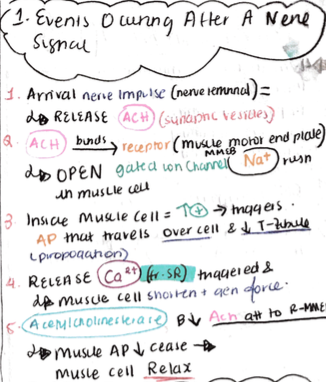 1. Events Occuring After A Nerve
Signal
1. Arrival nerve Impulse (nerve terminal) =
↳ RELEASE ACH (synaptic vesicles)
2. ACH binds → receptor (muscle motor end plate)
↳ OPEN gated ion Channel MMEB Na+ rush
in muscle cell
3. Inside Muscle Cell = ↑(+) → triggers
AP that travels over cell & ↓ T-Tubule
(propogation)
4. RELEASE Ca2+ (fr. SR) triggered &
↳ muscle cell shorten + gen force.
5. Acetylcholinesterase B↓ Ach att to R-MMEB
↳ Muscle AP ↓ cease →
muscle cell Relax